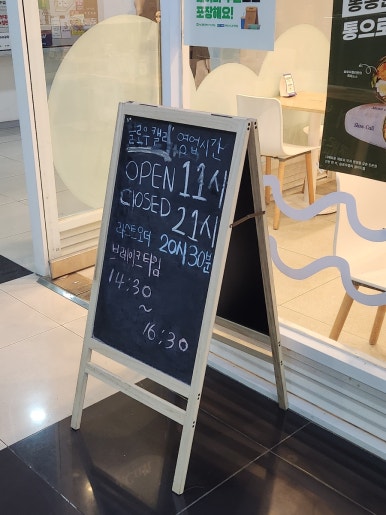 포장해요!
통으로
Slow Cali
슬로우캘리 영업시간
OPEN 11시
CLOSED 21시
라스트오더 20시 30분
브레이크타임
14:30
~
16:30